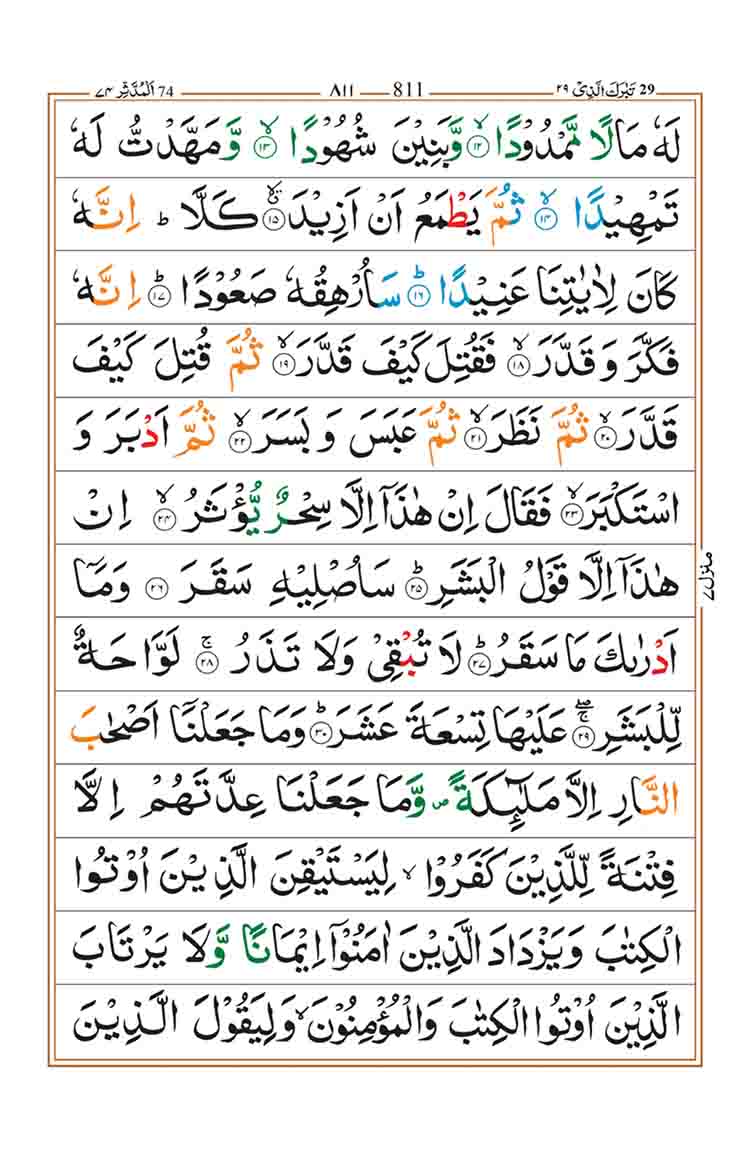 29 تَبٰرَكَ الَّذِیْ ٢٩ 811 ٨١١ اَلْمُدَّثِّر 74 ٧٤
لَهٗ مَالًا مَّمْدُوْدًا ۙ۝١٢ وَّبَنِیْنَ شُهُوْدًا ۙ۝١٣ وَّمَهَّدْتُّ لَهٗ
تَمْهِیْدًا ۙ۝١٤ ثُمَّ یَطْمَعُ اَنْ اَزِیْدَ ۝١٥ كَلَّا ؕ اِنَّهٗ
كَانَ لِاٰیٰتِنَا عَنِیْدًا ؕ۝١٦ سَاُرْهِقُهٗ صَعُوْدًا ؕ۝١٧ اِنَّهٗ
فَكَّرَ وَ قَدَّرَ ۙ۝١٨ فَقُتِلَ كَیْفَ قَدَّرَ ۙ۝١٩ ثُمَّ قُتِلَ كَیْفَ
قَدَّرَ ۙ۝٢٠ ثُمَّ نَظَرَ ۙ۝٢١ ثُمَّ عَبَسَ وَ بَسَرَ ۙ۝٢٢ ثُمَّ اَدْبَرَ وَ
اسْتَكْبَرَ ۙ۝٢٣ فَقَالَ اِنْ هٰذَاۤ اِلَّا سِحْرٌ یُّؤْثَرُ ۙ۝٢٤ اِنْ
هٰذَاۤ اِلَّا قَوْلُ الْبَشَرِ ؕ۝٢٥ سَاُصْلِیْهِ سَقَرَ ۝٢٦ وَمَاۤ
اَدْرٰىكَ مَا سَقَرُ ؕ۝٢٧ لَا تُبْقِیْ وَلَا تَذَرُ ۚ۝٢٨ لَوَّاحَةٌ
لِّلْبَشَرِ ۖۚ۝٢٩ عَلَیْهَا تِسْعَةَ عَشَرَ ؕ۝٣٠ وَمَا جَعَلْنَاۤ اَصْحٰبَ
النَّارِ اِلَّا مَلٰٓئِكَةً ۪ وَّمَا جَعَلْنَا عِدَّتَهُمْ اِلَّا
فِتْنَةً لِّلَّذِیْنَ كَفَرُوْا ۙ لِیَسْتَیْقِنَ الَّذِیْنَ اُوْتُوا
الْكِتٰبَ وَیَزْدَادَ الَّذِیْنَ اٰمَنُوْۤا اِیْمَانًا وَّلَا یَرْتَابَ
الَّذِیْنَ اُوْتُوا الْكِتٰبَ وَالْمُؤْمِنُوْنَ ۙ وَلِیَقُوْلَ الَّذِیْنَ
منزل ٧